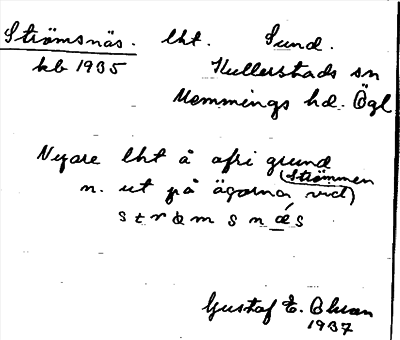 Strömsnäs. lht. Sund.
kb 1935 Kullerstads sn
Memmings hd. Ögl
Nyare lht å ofri grund
(Strömmen)
n. ut på ägorna vid
strömsnäs
Gustaf E. Ohson
1937